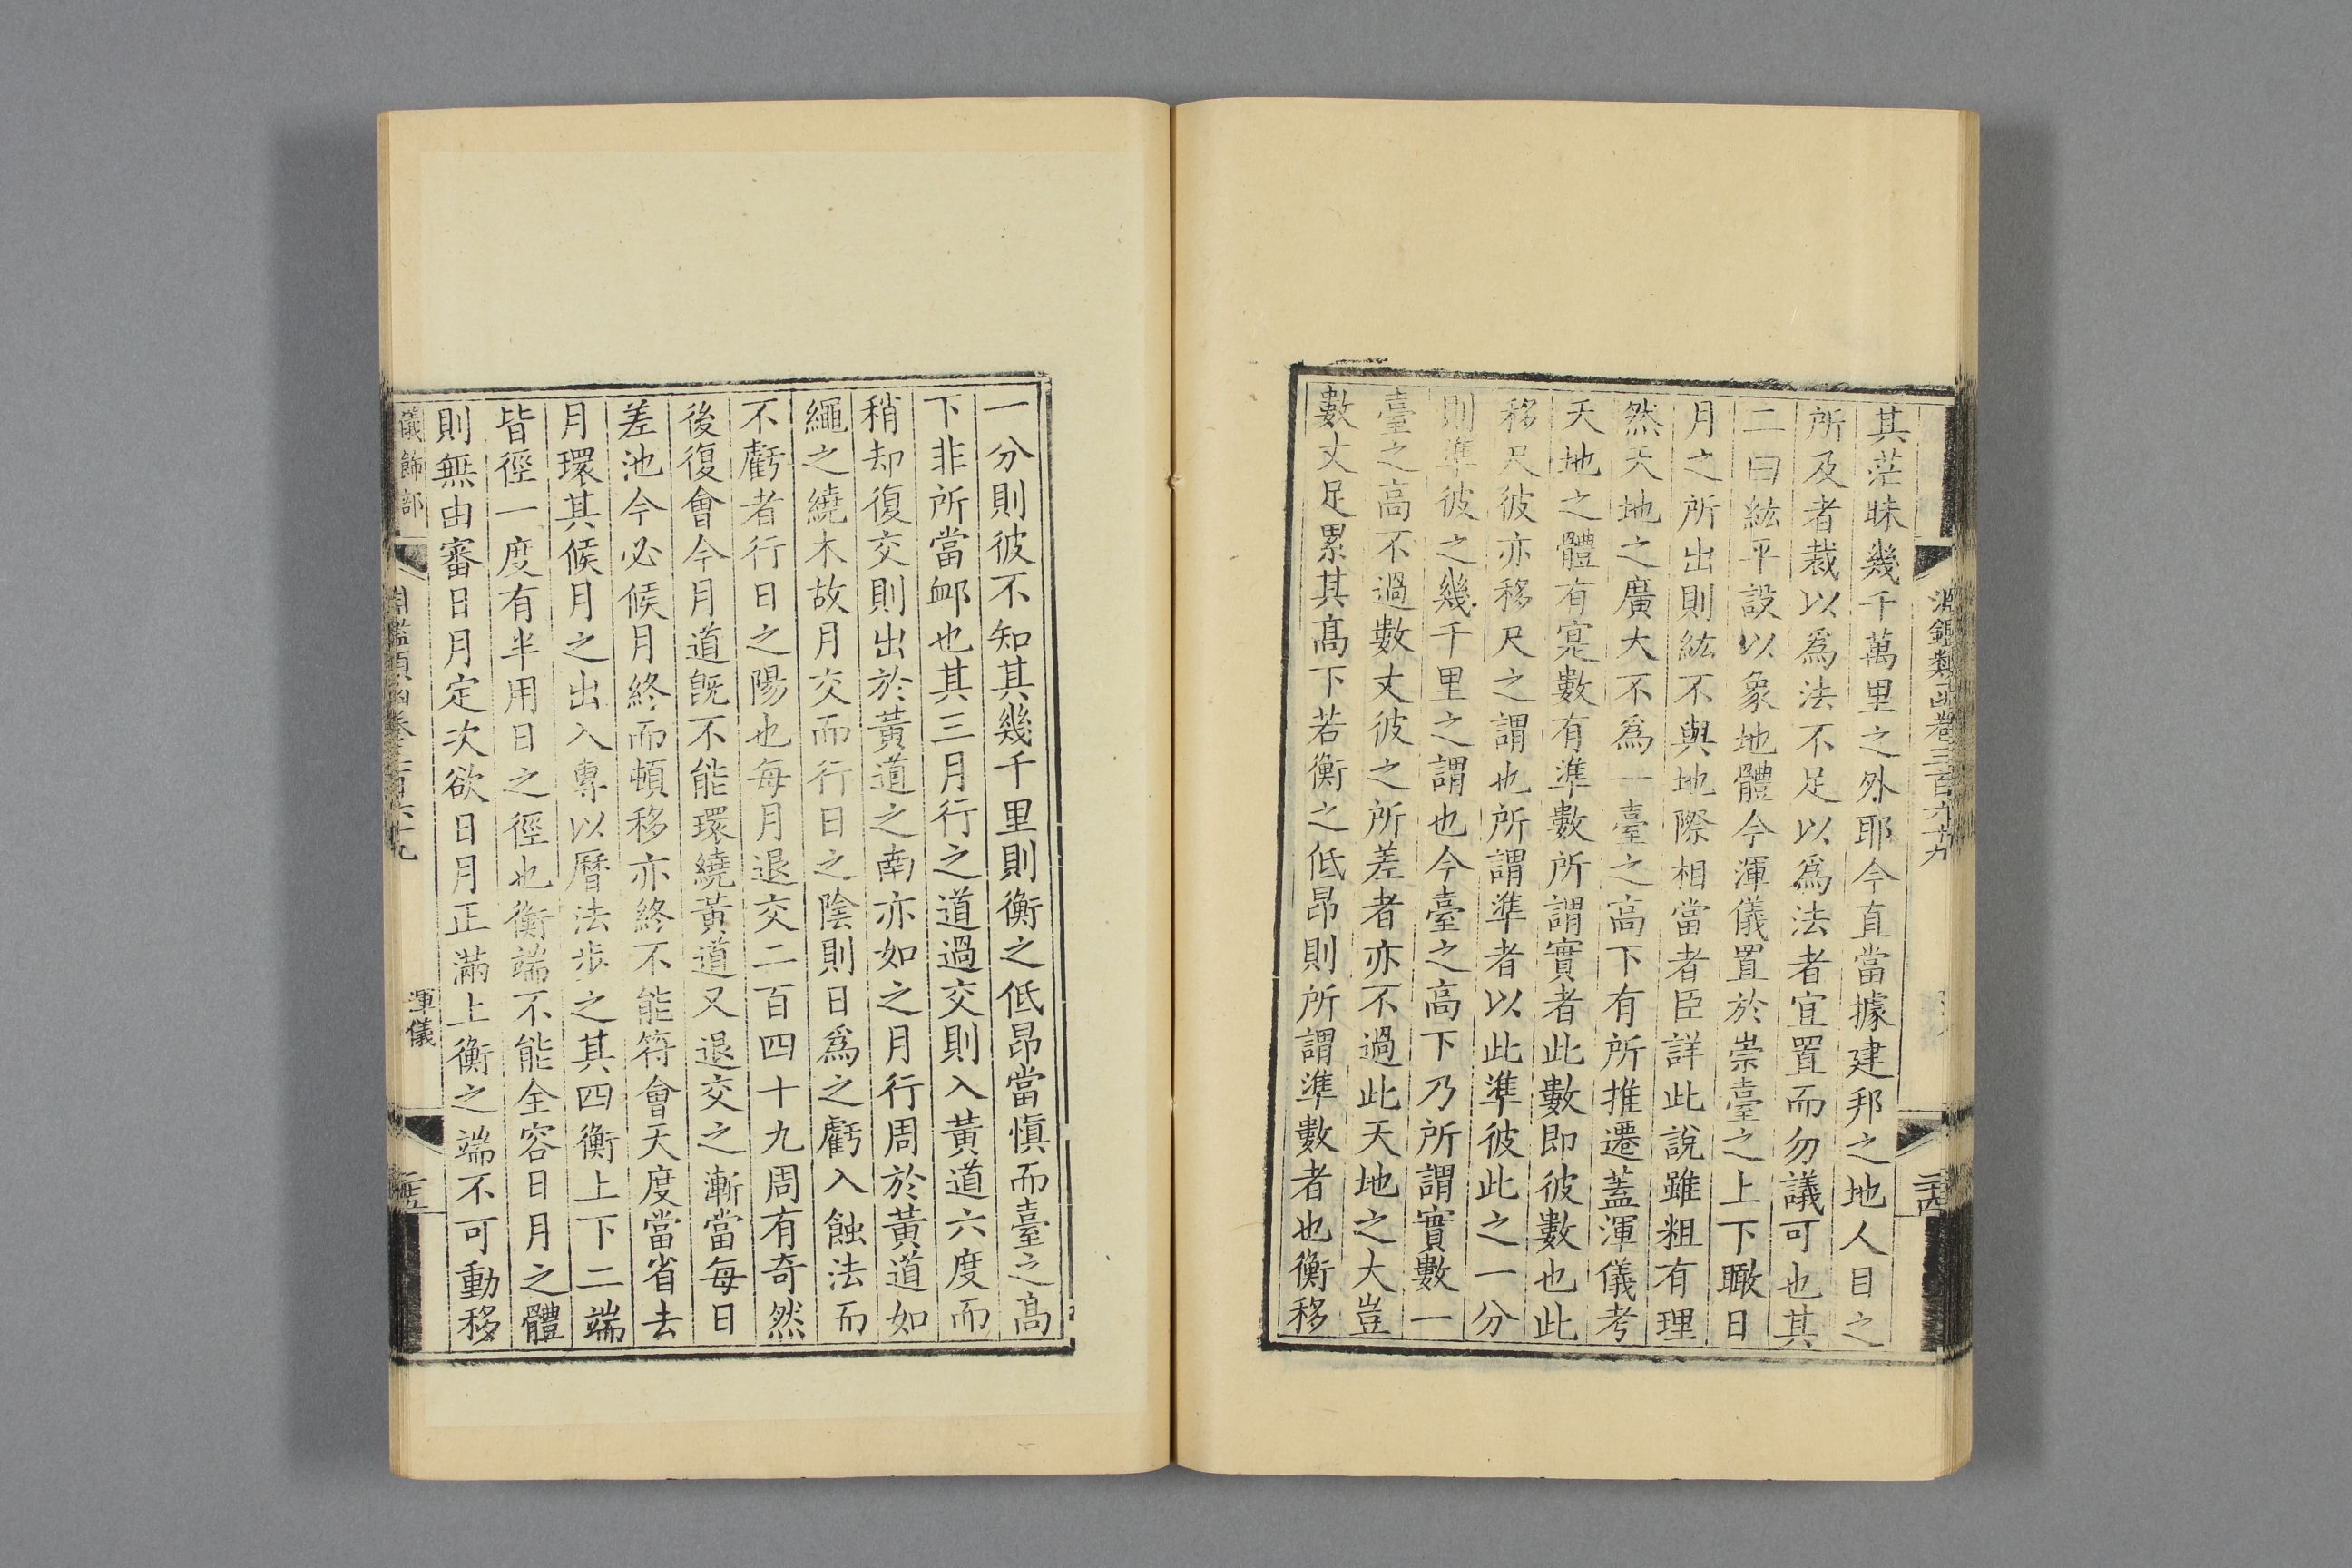 淵鑑類函卷三百六十九
二十四
其茫昧幾千萬里之外耶今直當據建邦之地人目之
所及者裁以爲法不足以爲法者宜置而勿議可也其
二曰紘平設以象地體今渾儀置於崇臺之上下瞰日
月之所出則紘不與地際相當者臣詳此說雖粗有理
然天地之廣大不爲一臺之高下有所推遷蓋渾儀考
天地之體有寔數有準數所謂實者此數即彼數也此
移尺彼亦移尺之謂也所謂準者以此準彼此之一分
則準彼之幾千里之謂也今臺之高下乃所謂實數一
臺之高不過數丈彼之所差者亦不過此天地之大豈
數丈足累其髙下若衡之低昂則所謂準數者也衡移
一分則彼不知其幾千里則衡之低昂當慎而臺之髙
下非所當䘏也其三月行之道過交則入黃道六度而
稍却復交則出於黃道之南亦如之月行周於黃道如
繩之繞木故月交而行日之陰則日爲之虧入蝕法而
不虧者行日之陽也每月退交二百四十九周有奇然
後復會今月道旣不能環繞黃道又退交之漸當每日
差池今必候月終而頓移亦終不能符會天度當省去
月環其候月之出入專以曆法步之其四衡上下二端
皆徑一度有半用日之徑也衡端不能全容日月之體
則無由審日月定次欲日月正滿上衡之端不可動移
儀飾部
淵鑑類函卷三百六十九
渾儀
二十五